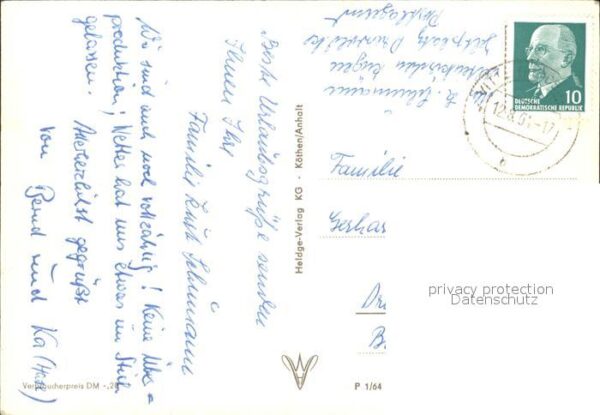 Beste Urlaubsgrüße senden
Ihnen Ihre
Familie Kurt Schumann
Wir sind auch noch vollzählig! Keine Über-
produktion! Wetter hat uns etwas im Stich
gelassen. Herzlichst gegrüßt
von Bernd und Ka
Verbraucherpreis DM -,20
Heldge-Verlag KG · Köthen/Anhalt
P 1/64
Schumann
Zeltplatz
Postlagernd
DEUTSCHE
DEMOKRATISCHE REPUBLIK
10
Familie
Gerhar
B.
privacy protection
Datenschutz